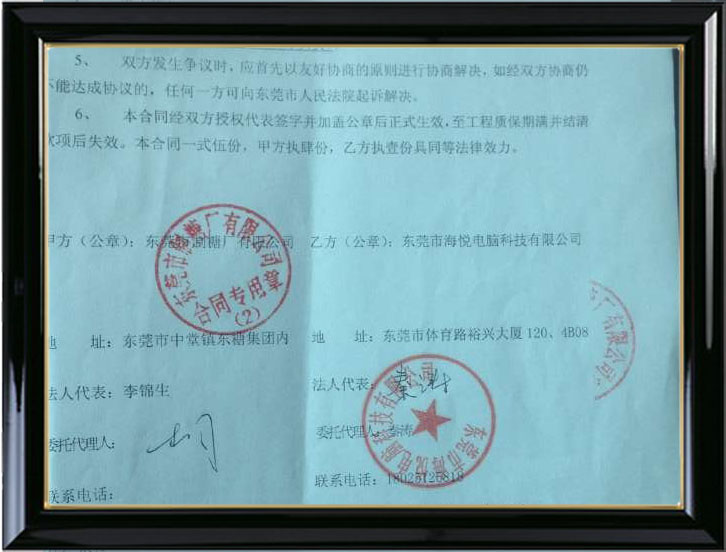 5、 双方发生争议时，应首先以友好协商的原则进行协商解决，如经双方协商仍
不能达成协议的，任何一方可向东莞市人民法院起诉解决。
6、 本合同经双方授权代表签字并加盖公章后正式生效，至工程质保期满并结清
款项后失效。本合同一式伍份，甲方执肆份，乙方执壹份具同等法律效力。
甲方（公章）：东莞市制糖厂有限公司 乙方（公章）：东莞市海悦电脑科技有限公司
东莞市制糖厂有限公司
合同专用章
（2）
地 址：东莞市中堂镇东糖集团内 地 址：东莞市体育路裕兴大厦120、4B08
法人代表：李锦生 法人代表：
委托代理人： 委托代理人：秦涛
联系电话： 联系电话：18025126818
东莞市海悦电脑科技有限公司
有限公司